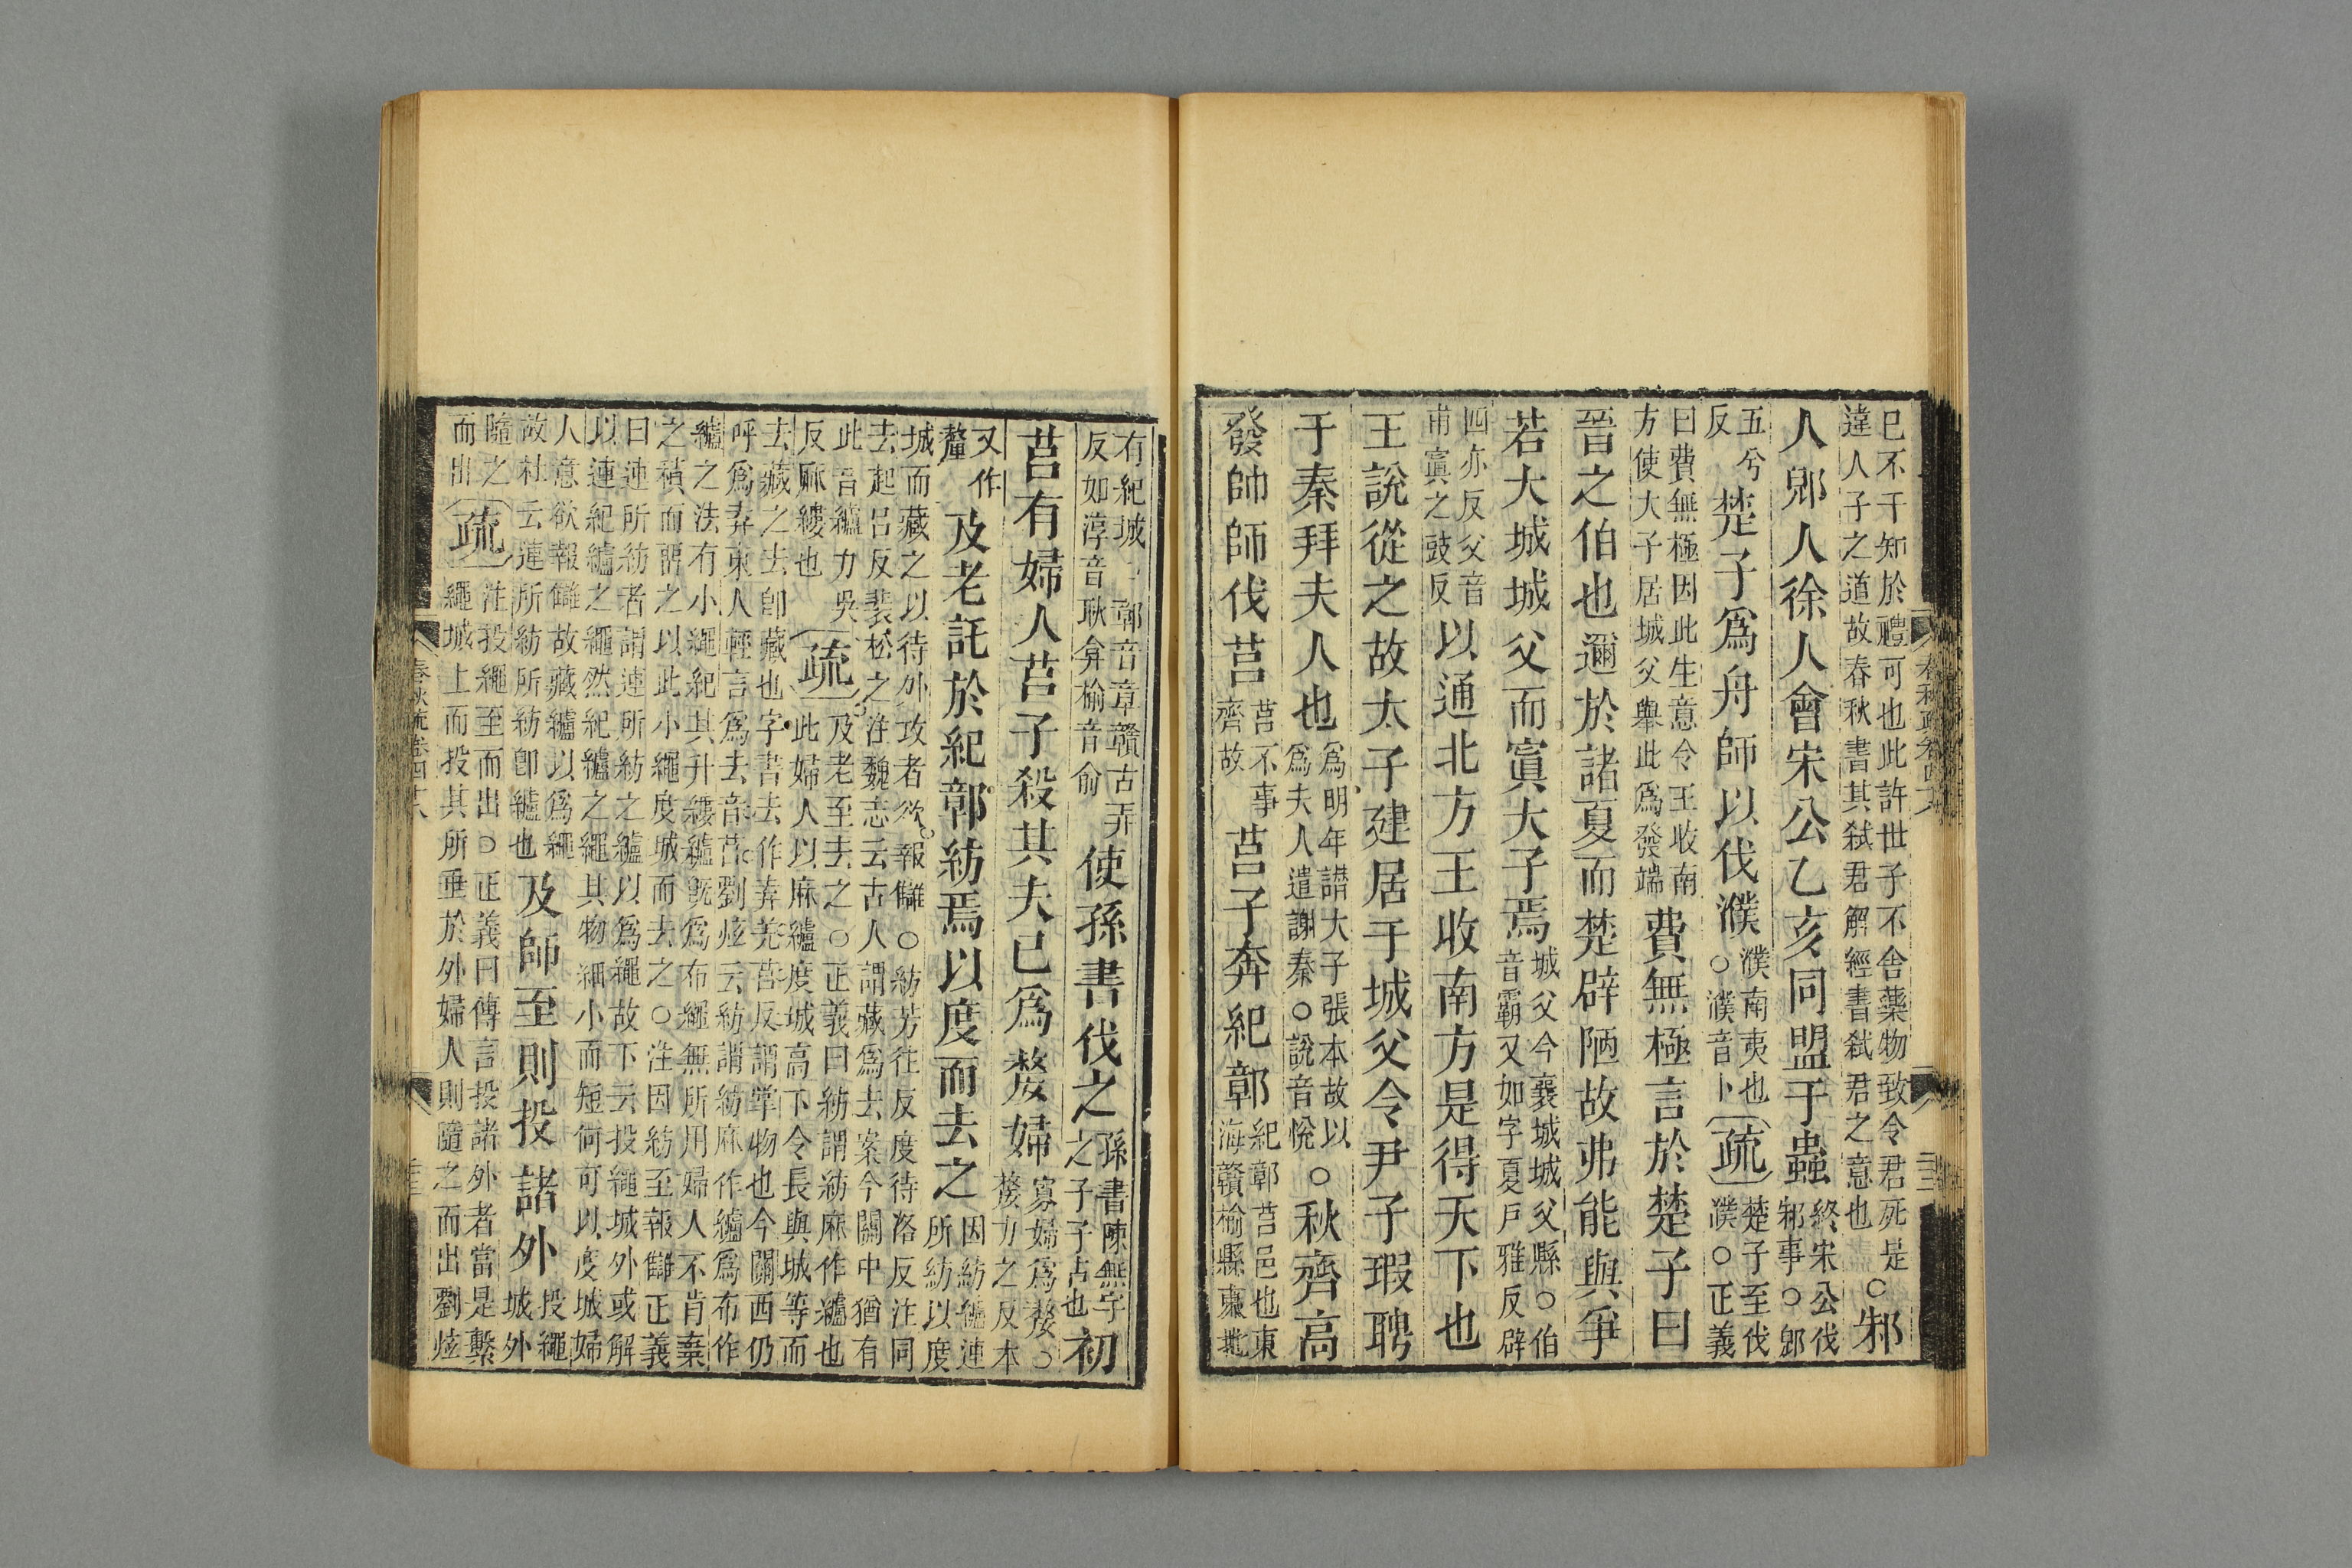 巳不干知於禮可也此許世子不舍藥物致令君死是
違人子之道故春秋書其弑君解經書弑君之意也
○邾
人郳人徐人會宋公乙亥同盟于蟲
終宋公伐
邾事○郳
五兮
反
楚子爲舟師以伐濮
濮南夷也
○濮音卜
疏
楚子至伐
濮○正義
曰費無極因此生意令王收南
方使大子居城父舉此爲發端
費無極言於楚子曰
晉之伯也邇於諸夏而楚辟陋故弗能與爭
若大城城父而寘大子焉
城父今襄城城父縣○伯
音霸又如字夏戸雅反辟
四亦反父音
甫寘之豉反
以通北方王收南方是得天下也
王說從之故太子建居于城父令尹子瑕聘
于秦拜夫人也
爲明年譖大子張本故以
爲夫人遣謝秦○說音悅
○秋齊高
發帥師伐莒
莒不事
齊故
莒子奔紀鄣
紀鄣莒邑也東
海贛榆縣東北
有紀城○鄣音章贛古弄
反如淳音耿弇榆音俞
使孫書伐之
孫書陳無宇
之子子占也
初
莒有婦人莒子殺其夫已爲嫠婦
寡婦爲嫠○
嫠力之反本
又作
釐
及老託於紀鄣紡焉以度而去之
因紡纑連
所紡以度
城而藏之以待外攻者欲報讎○紡芳往反度待洛反注同
去起呂反裴松之注魏志云古人謂藏爲去案今關中猶有
此音纑力吳
反麻縷也
疏
及老至去之○正義曰紡謂紡麻作纑也
此婦人以麻纑度城高下令長與城等而
去藏之去卽藏也字書去作弆羌莒反謂掌物也今關西仍
呼爲弆東人輕言爲去音莒劉炫云紡謂紡麻作纑爲布作
纑之法有小繩紀其升縷纑旣爲布繩無所用婦人不肯棄
之積而留之以此小繩度城而去之○注因紡至報讎正義
曰連所紡者謂連所紡之纑以爲繩故下云投繩城外或解
以連紀纑之繩然紀纑之繩其物細小而短何可以度城婦
人意欲報讎故藏纑以爲繩
故杜云連所紡所紡卽纑也
及師至則投諸外
投繩
城外
隨之
而出
疏
注投繩至而出○正義曰傳言投諸外者當是繫
繩城上而投其所垂於外婦人則隨之而出劉炫